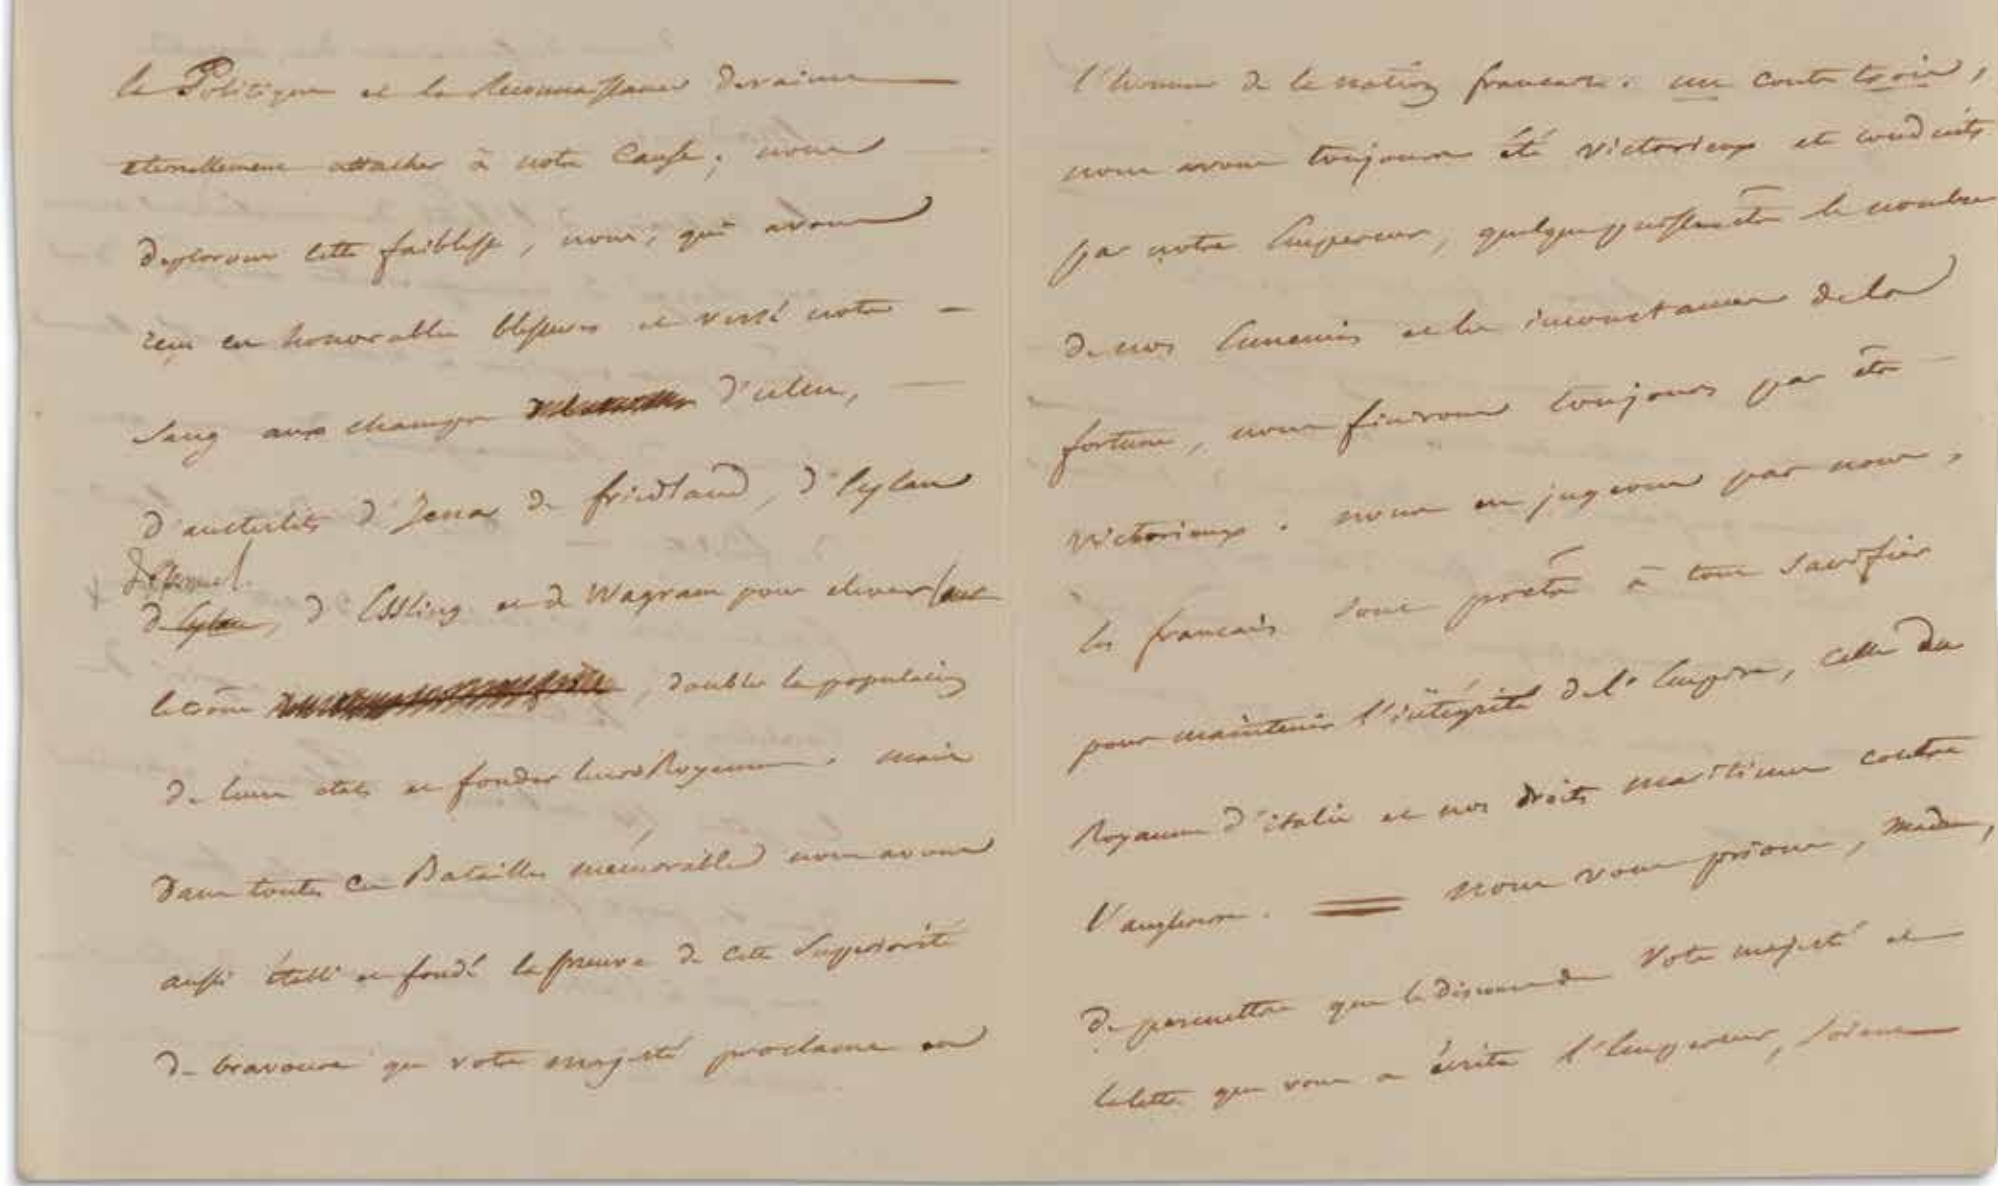 la Politique et la Reconnaissance devaient
eternellement attacher à notre Cause; nous
deplorons cette faiblesse, nous, qui avons
reçu ces honorables blessures et versé notre
sang aux champs d'ulm,
d'austerlitz d'Jena de friedland, d'Eylau
d'Essling et de Wagram pour élever leur
le trône, doubler la population
de leurs etats et fonder leurs Royaumes. mais
dans toutes ces Batailles mémorables nous avons
aussi établi et fondé la preuve de cette Superiorité
de bravoure que votre majesté proclame en
l'honneur de la nation francaise. un contre trois,
nous avons toujours été victorieux et conduits
par notre Empereur, quelque puissent être le nombre
de nos Ennemis et les inconstances de la
fortune, nous finirons toujours par être
victorieux. nous en jugeons par nous,
les francais sont prets à tout sacrifier
pour maintenir l'intégrité de l'Empire, celle du
Royaume d'italie et nos droits maritimes contre
l'angleterre. nous vous prions, madame,
de permettre que le discours de Votre majesté et
la lettre que vous a écrite l'Empereur, soient